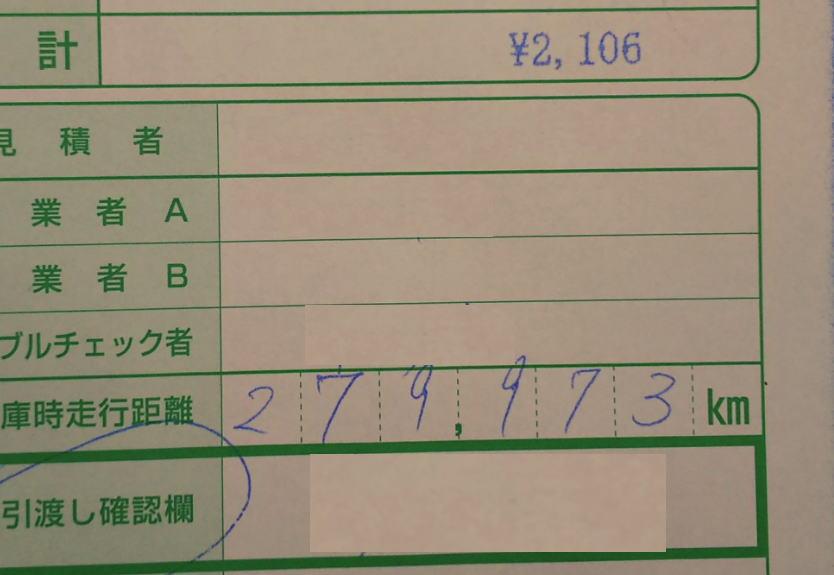 計 ¥2,106
見積者
業者A
業者B
ブルチェック者
庫時走行距離 279,973 km
引渡し確認欄